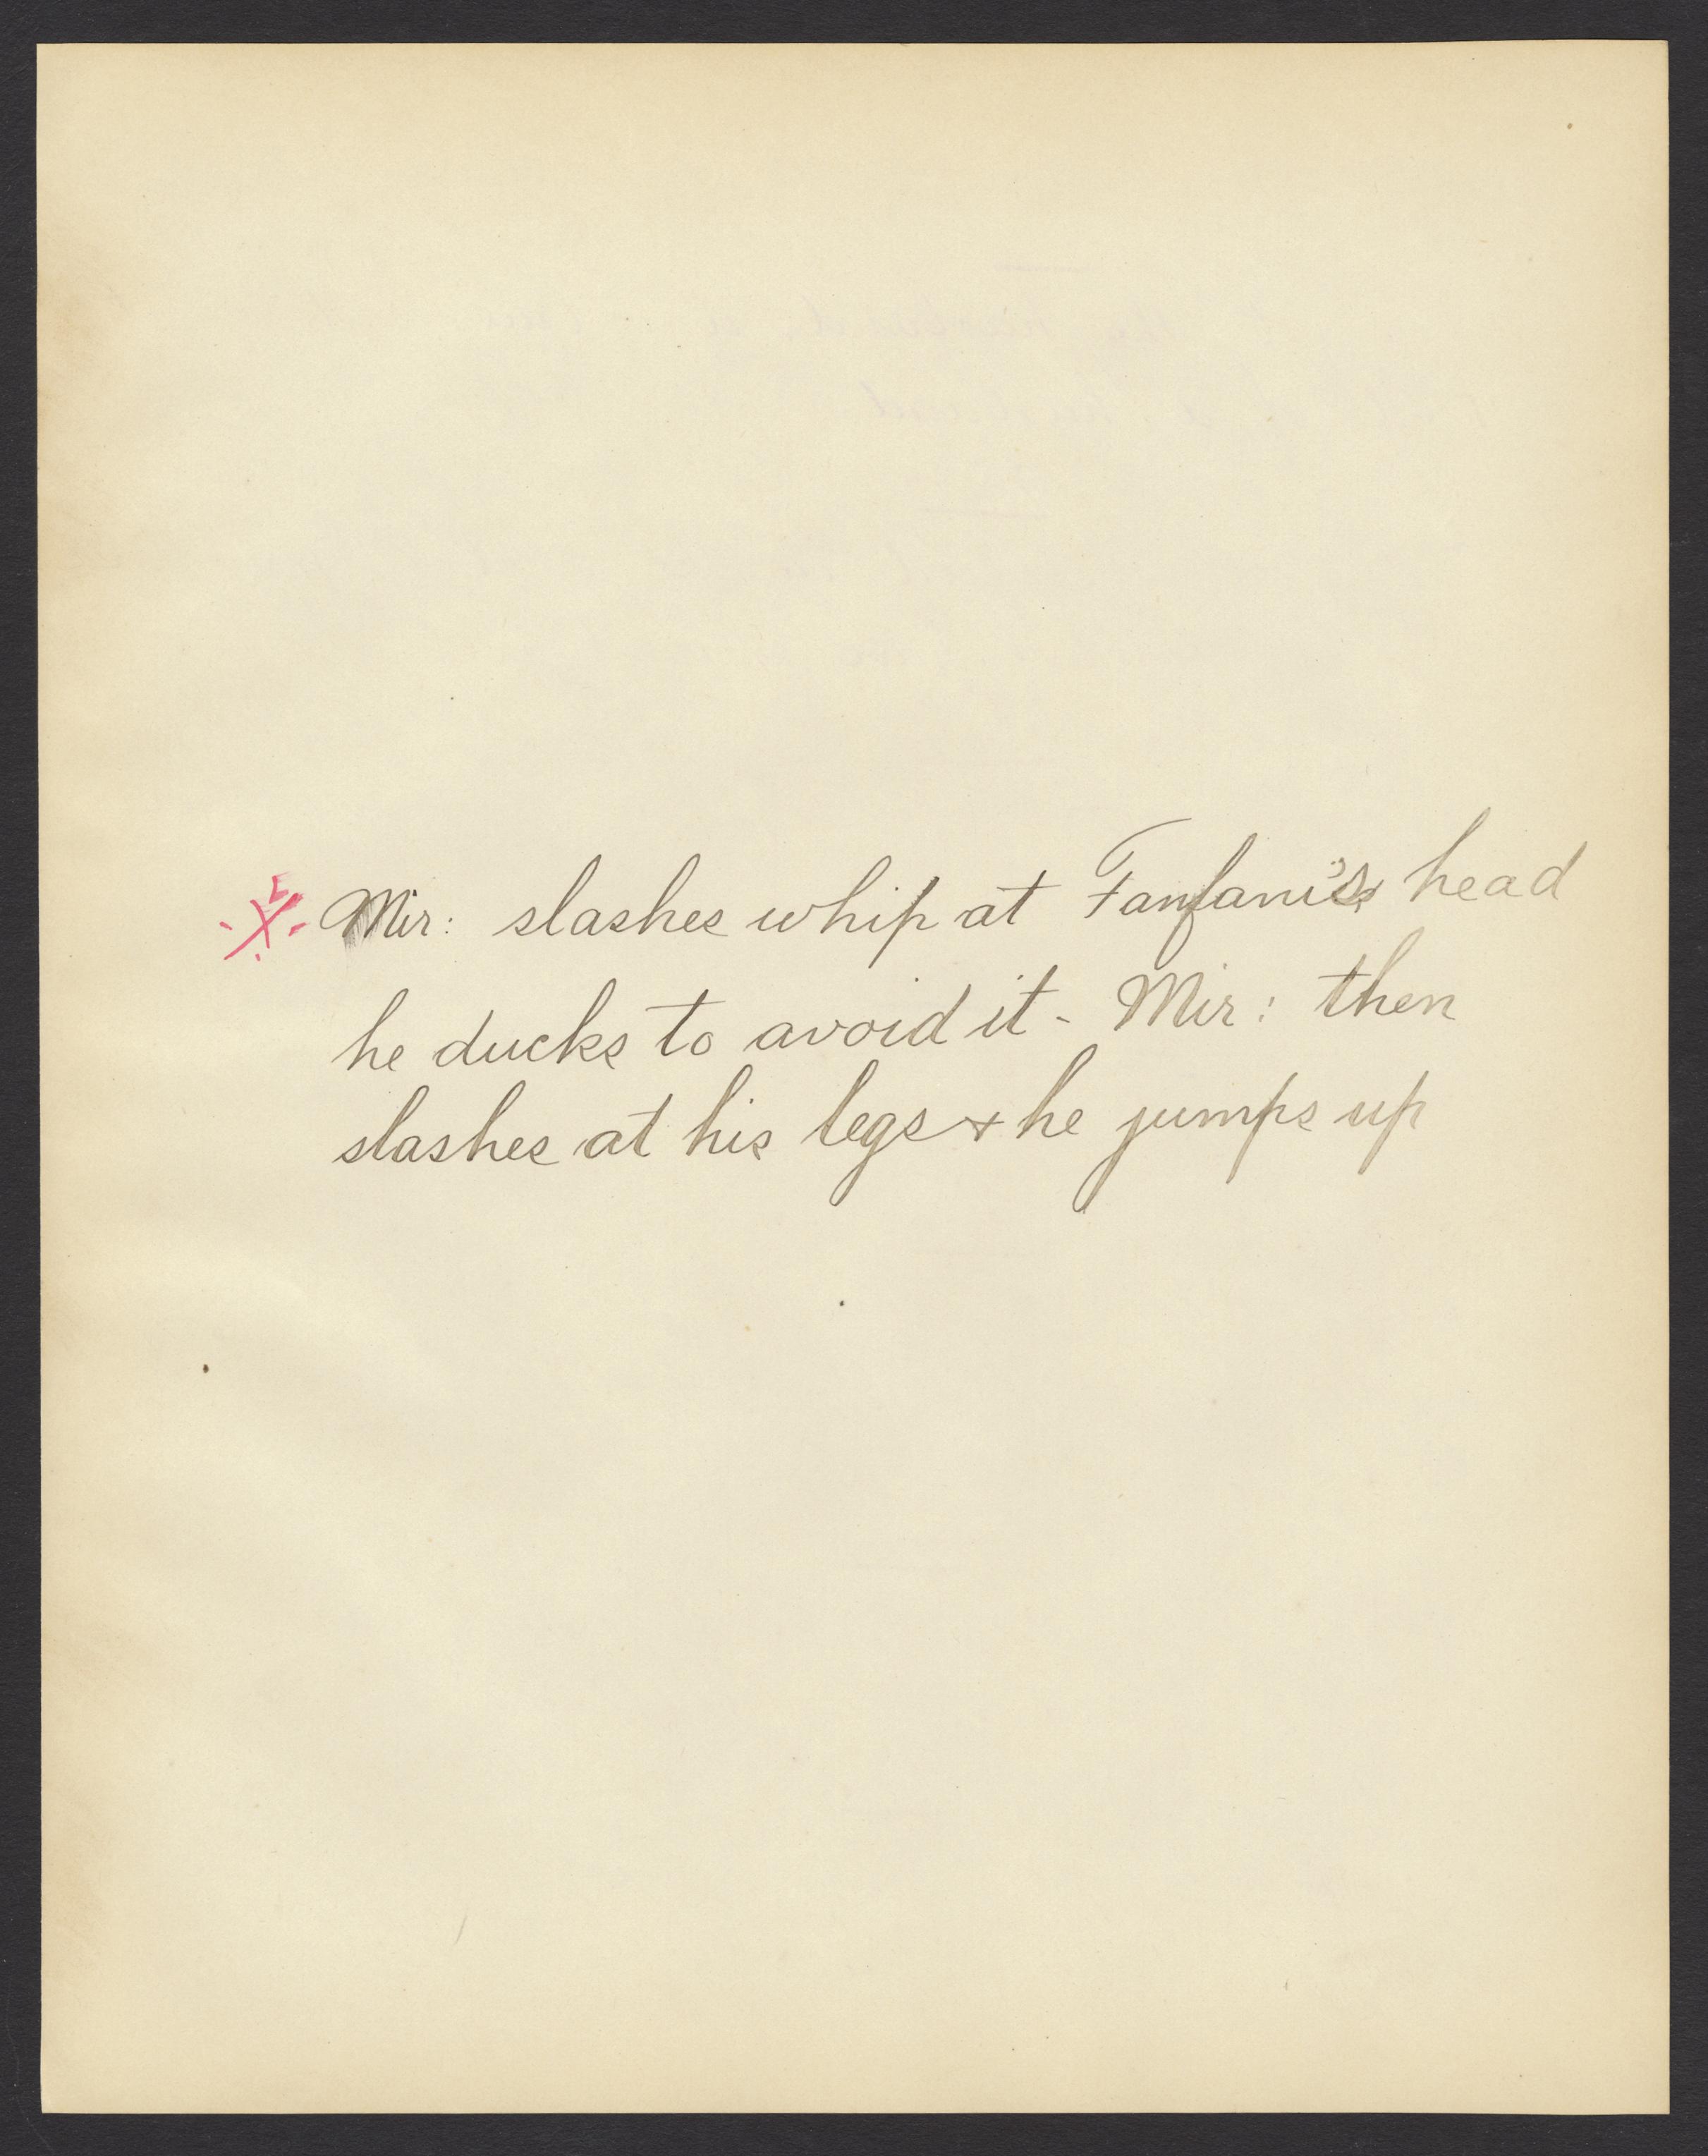 ※ Mir: slashes whip at Fanfani's head
he ducks to avoid it - Mir: then
slashes at his legs & he jumps up